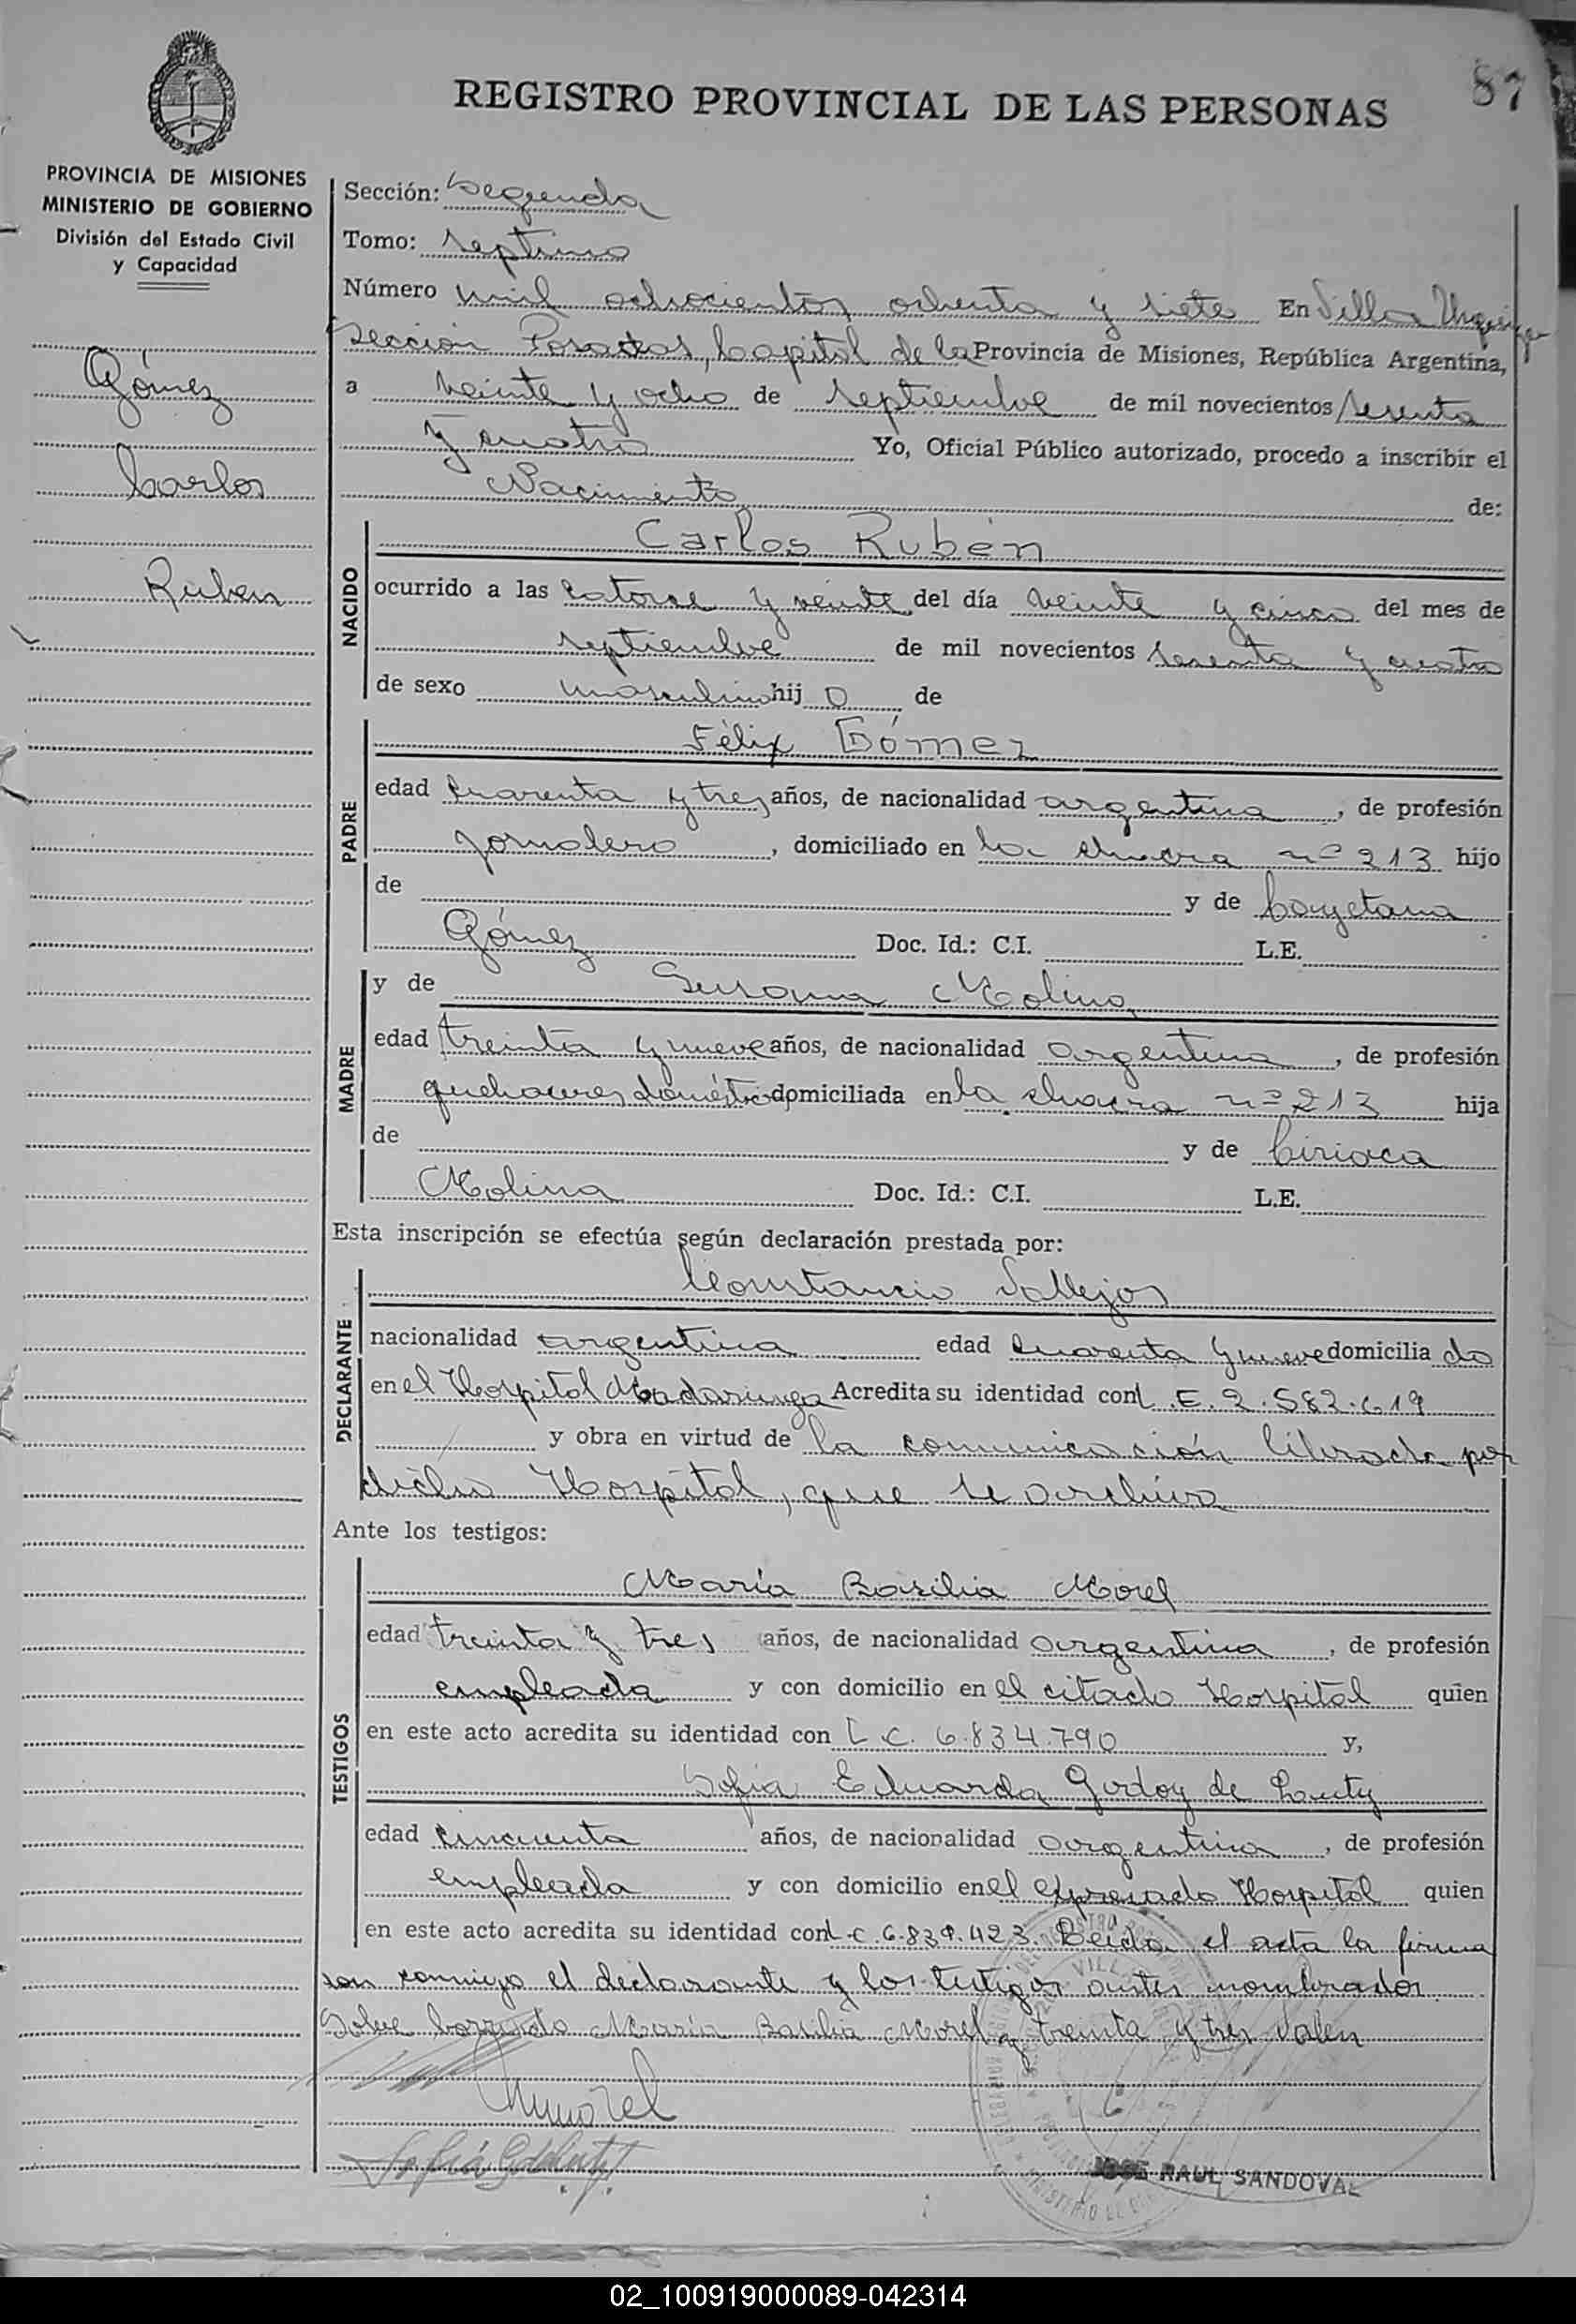 87
REGISTRO PROVINCIAL DE LAS PERSONAS
PROVINCIA DE MISIONES
MINISTERIO DE GOBIERNO
División del Estado Civil
y Capacidad
Gómez
Carlos
Ruben
Sección: Segunda
Tomo: septimo
Número mil ochocientos ochenta y siete En Villa Urquiza
Sección Posadas, Capital de la Provincia de Misiones, República Argentina,
a veinte y ocho de septiembre de mil novecientos sesenta
y cuatro Yo, Oficial Público autorizado, procedo a inscribir el
Nacimiento de:
NACIDO
Carlos Rubén
ocurrido a las catorce y veinte del día veinte y cinco del mes de
septiembre de mil novecientos sesenta y cuatro
de sexo masculino hijo de
PADRE
Félix Gómez
edad cuarenta y tres años, de nacionalidad argentina, de profesión
jornalero, domiciliado en la chacra nº 213 hijo
de y de Cayetana
Gómez Doc. Id.: C.I. L.E.
MADRE
y de Susana Molina
edad treinta y nueve años, de nacionalidad argentina, de profesión
quehaceres domésticos domiciliada en la chacra nº 213 hija
de y de Ciriaca
Molina Doc. Id.: C.I. L.E.
Esta inscripción se efectúa según declaración prestada por:
DECLARANTE
Constancio Vallejos
nacionalidad argentina edad cuarenta y nueve domiciliado
en el Hospital Madariaga Acredita su identidad con L.E. 2.582.619
y obra en virtud de la comunicación librada por
dicho Hospital, que se archiva
Ante los testigos:
TESTIGOS
María Basilia Morel
edad treinta y tres años, de nacionalidad argentina, de profesión
empleada y con domicilio en el citado Hospital quien
en este acto acredita su identidad con L.C. 6.834.790 y,
Sofia Eduarda Godoy de
edad cincuenta años, de nacionalidad argentina, de profesión
empleada y con domicilio en el expresado Hospital quien
en este acto acredita su identidad con L.C. 6.839.423. Leida el acta la firma
son conmigo el declarante y los testigos antes nombrados
Sobre borrado María Basilia Morel y treinta y tres Valen
JOSE RAUL SANDOVAL
02_100919000089-042314